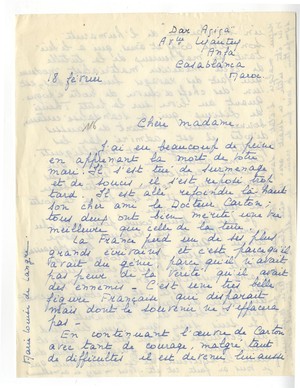 Dar "Aziza"
Anfa
Casablanca
Maroc.
8 février
Chère madame.
J'ai eu beaucoup de peine
en apprenant la mort de votre
mari. Il s'est tué de surmenage
et de soucis, il s'est reposé trop
tard. Il est allé rejoindre là haut
son cher ami le Docteur Carton;
tous deux ont bien mérité une vie
meilleure que celle de la terre.
La France perd un de ses plus
grands écrivains et c'est parce qu'il
avait du génie, parce qu'il n'avait
pas peur de la vérité qu'il avait
des ennemis - C'est une très belle
figure Française qui disparait
mais dont le souvenir ne s'effacera
pas -
En continuant l'œuvre de Carton
avec tant de courage, malgré tant
de difficultés il est devenu lui aussi
Marie Louise de